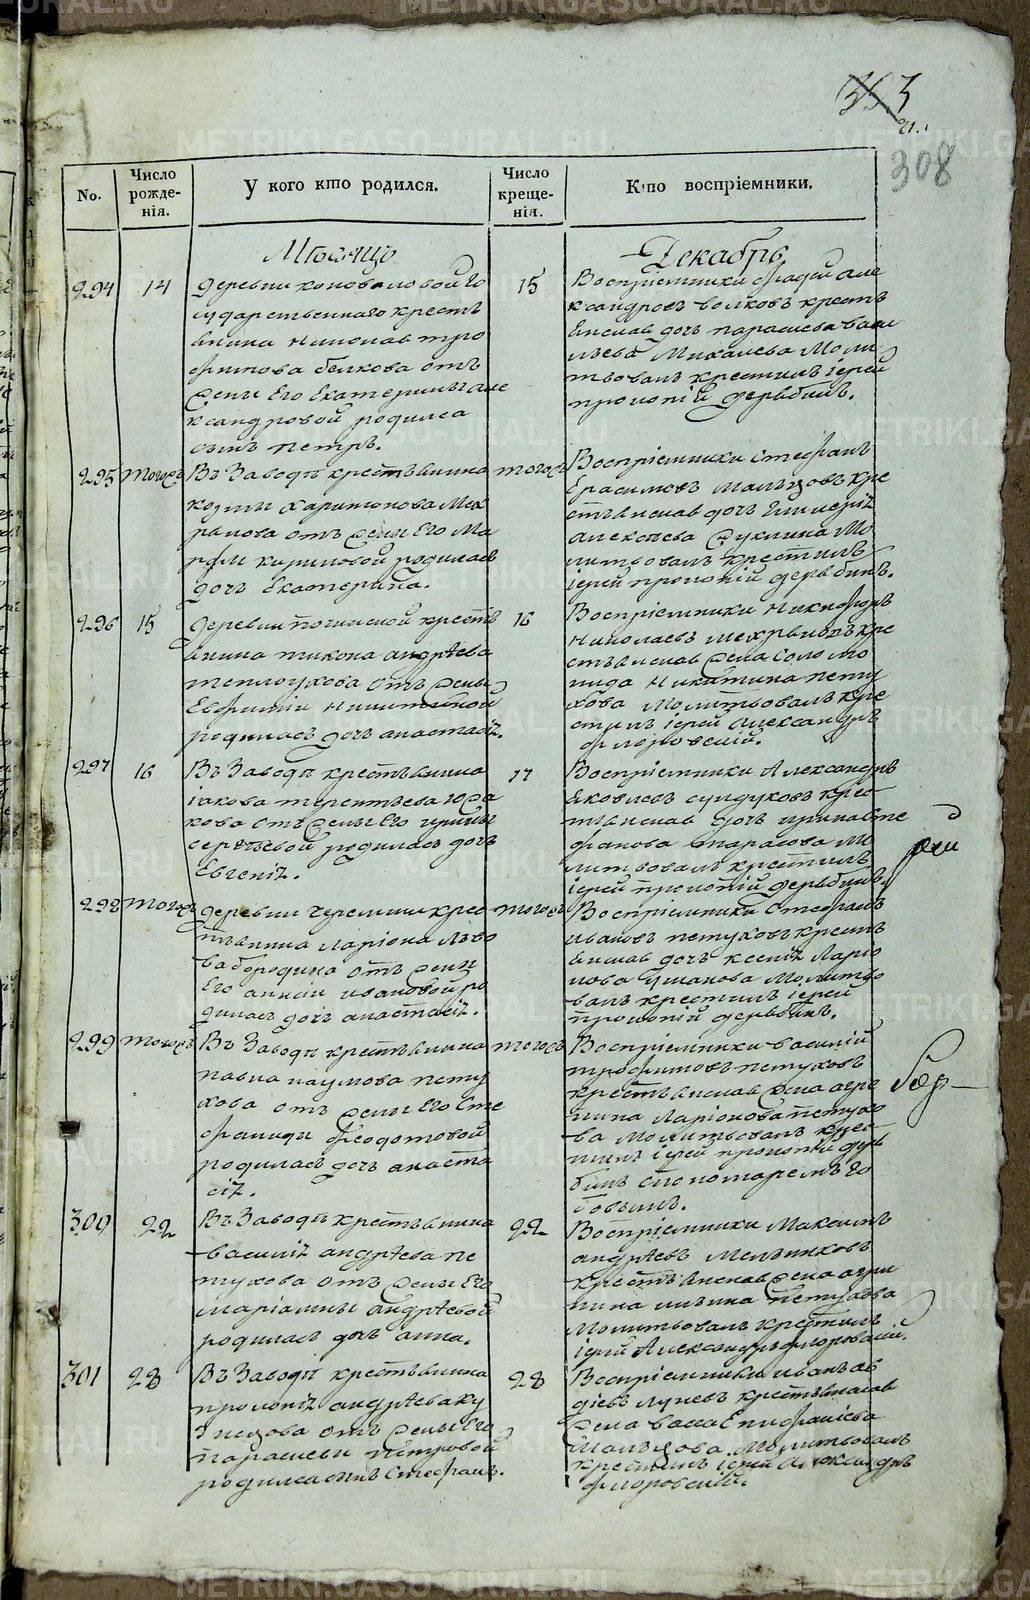 353
308
No.
Число рожде- нія.
У кого кто родился.
Число креще- нія.
Кто воспріемники.
Мѣсяцъ
Декабрь
294 14
деревни коноваловой го
сударственнаго кресть
янина николая тро
фимова белкова отъ
жены Его Екатерины але
ксандровой родился
сынъ петръ.
15
Воспріемники фадей але
ксандровъ волковъ кресть
янская дочь парасковья васи
льева Михалева Моли
твовалъ крестилъ іерей
прокопій дерябинъ.
295 тогожъ
Въ Заводѣ крестьянина
козмы харитонова Мех
отъ жены Его Ма
рфы кириловой родилась
дочь Екатерина.
тогожъ
Воспріемники Стефанъ
Герасимовъ мальцовъ кре
стьянская дочь гликерія
алексѣева Мо
литвовалъ крестилъ
іерей прокопій дерябинъ.
296 15
деревни крестья
янина тихона андрѣева
теплоухова отъ жены
Евфиміи никитиной
родилась дочь анастасія.
16
Воспріемники никифоръ
николаевъ кре
стьянская жена соломо
нида никитина пету
хова Молитвовалъ кре
стилъ іерей Александръ
флоровскій.
297 16
Въ Заводѣ крестьянина
іакова терентьева
отъ жены Его ирины
сергѣевой родилась дочь
Евгенія.
17
Воспріемники Александръ
яковлевъ сундуковъ крес
тьянская дочь ирина сте
фанова Мо
литвовалъ крестилъ
іерей прокопій дерябинъ.
298 тогожъ
деревни черемши крес
тьянина Ларіона Льво
ва бородина отъ жены
Его анисіи ивановой ро
дилась дочь анастасія.
тогожъ
Воспріемники Стефанъ
ивановъ петуховъ кресть
янская дочь ксенія Ларіо
нова ушакова Молитво
валъ крестилъ іерей
прокопій дерябинъ.
299 тогожъ
Въ Заводѣ крестьянина
павла наумова пету
хова отъ жены Его Сте
фаниды феодотовой
родилась дочь анаста
сія.
тогожъ
Воспріемники василій
трофимовъ петуховъ
крестьянская жена агри
пина Ларіонова петухо
ва Молитвовалъ крес
тилъ іерей прокопій деря
бинъ съ пономаремъ

300 22
Въ Заводѣ крестьянина
василія андрѣева пе
тухова отъ жены Его
маріамны андрѣевой
родилась дочь анна.
22
Воспріемники Максимъ
андрѣевъ Мельниковъ
крестьянская жена агри
пина ильина петухова
Молитвовалъ крестилъ
іерей Александръ флоровскій.
301 28
Въ Заводѣ крестьянина
прокопія андрѣева ку
знецова отъ жены Его
параскевы петровой
родился сынъ Стефанъ.
28
Воспріемники иванъ ав
дѣевъ луневъ крестьянская
жена васса Епифаніева
мальцова Молитвовалъ
крестилъ іерей Александръ
флоровскій.
METRIKI.GASO-URAL.RU